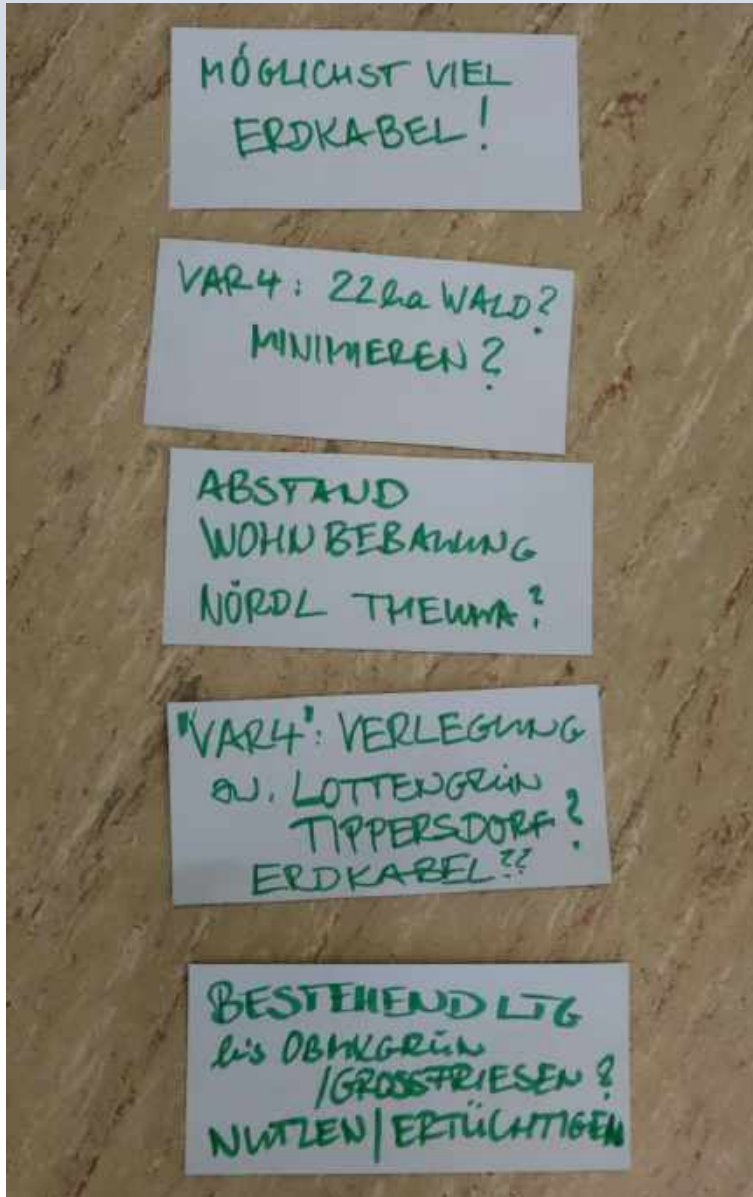 MÖGLICHST VIEL
ERDKABEL!
VAR4: 22ha WALD?
MINIMIEREN?
ABSTAND
WOHNBEBAUUNG
NÖRDL THEUMA?
"VAR4": VERLEGUNG
ZW. LOTTENGRÜN
TIPPERSDORF?
ERDKABEL??
BESTEHEND LTG
bis
/GROSSFRIESEN?
NUTZEN/ERTÜCHTIGEN